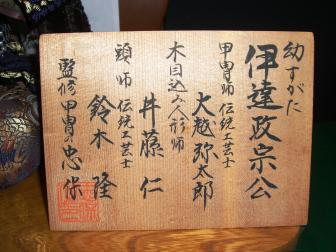 幼すがた
伊達政宗公
甲冑師 伝統工芸士
大越弥太郎
木目込み人形師
井藤仁
頭師 伝統工芸士
鈴木隆
監修 甲冑忠保